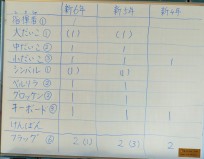 新6年 新5年 新4年
指揮者①
大だいこ① (1) (1)
中だいこ① 1 1
小だいこ③ 1 1 1
シンバル① (1) (1)
ベルリラ② 1 1
グロッケン② 1 1
キーボード③ 1 1 1
けんばん
フラッグ⑥ 2(1) 2(3) 2